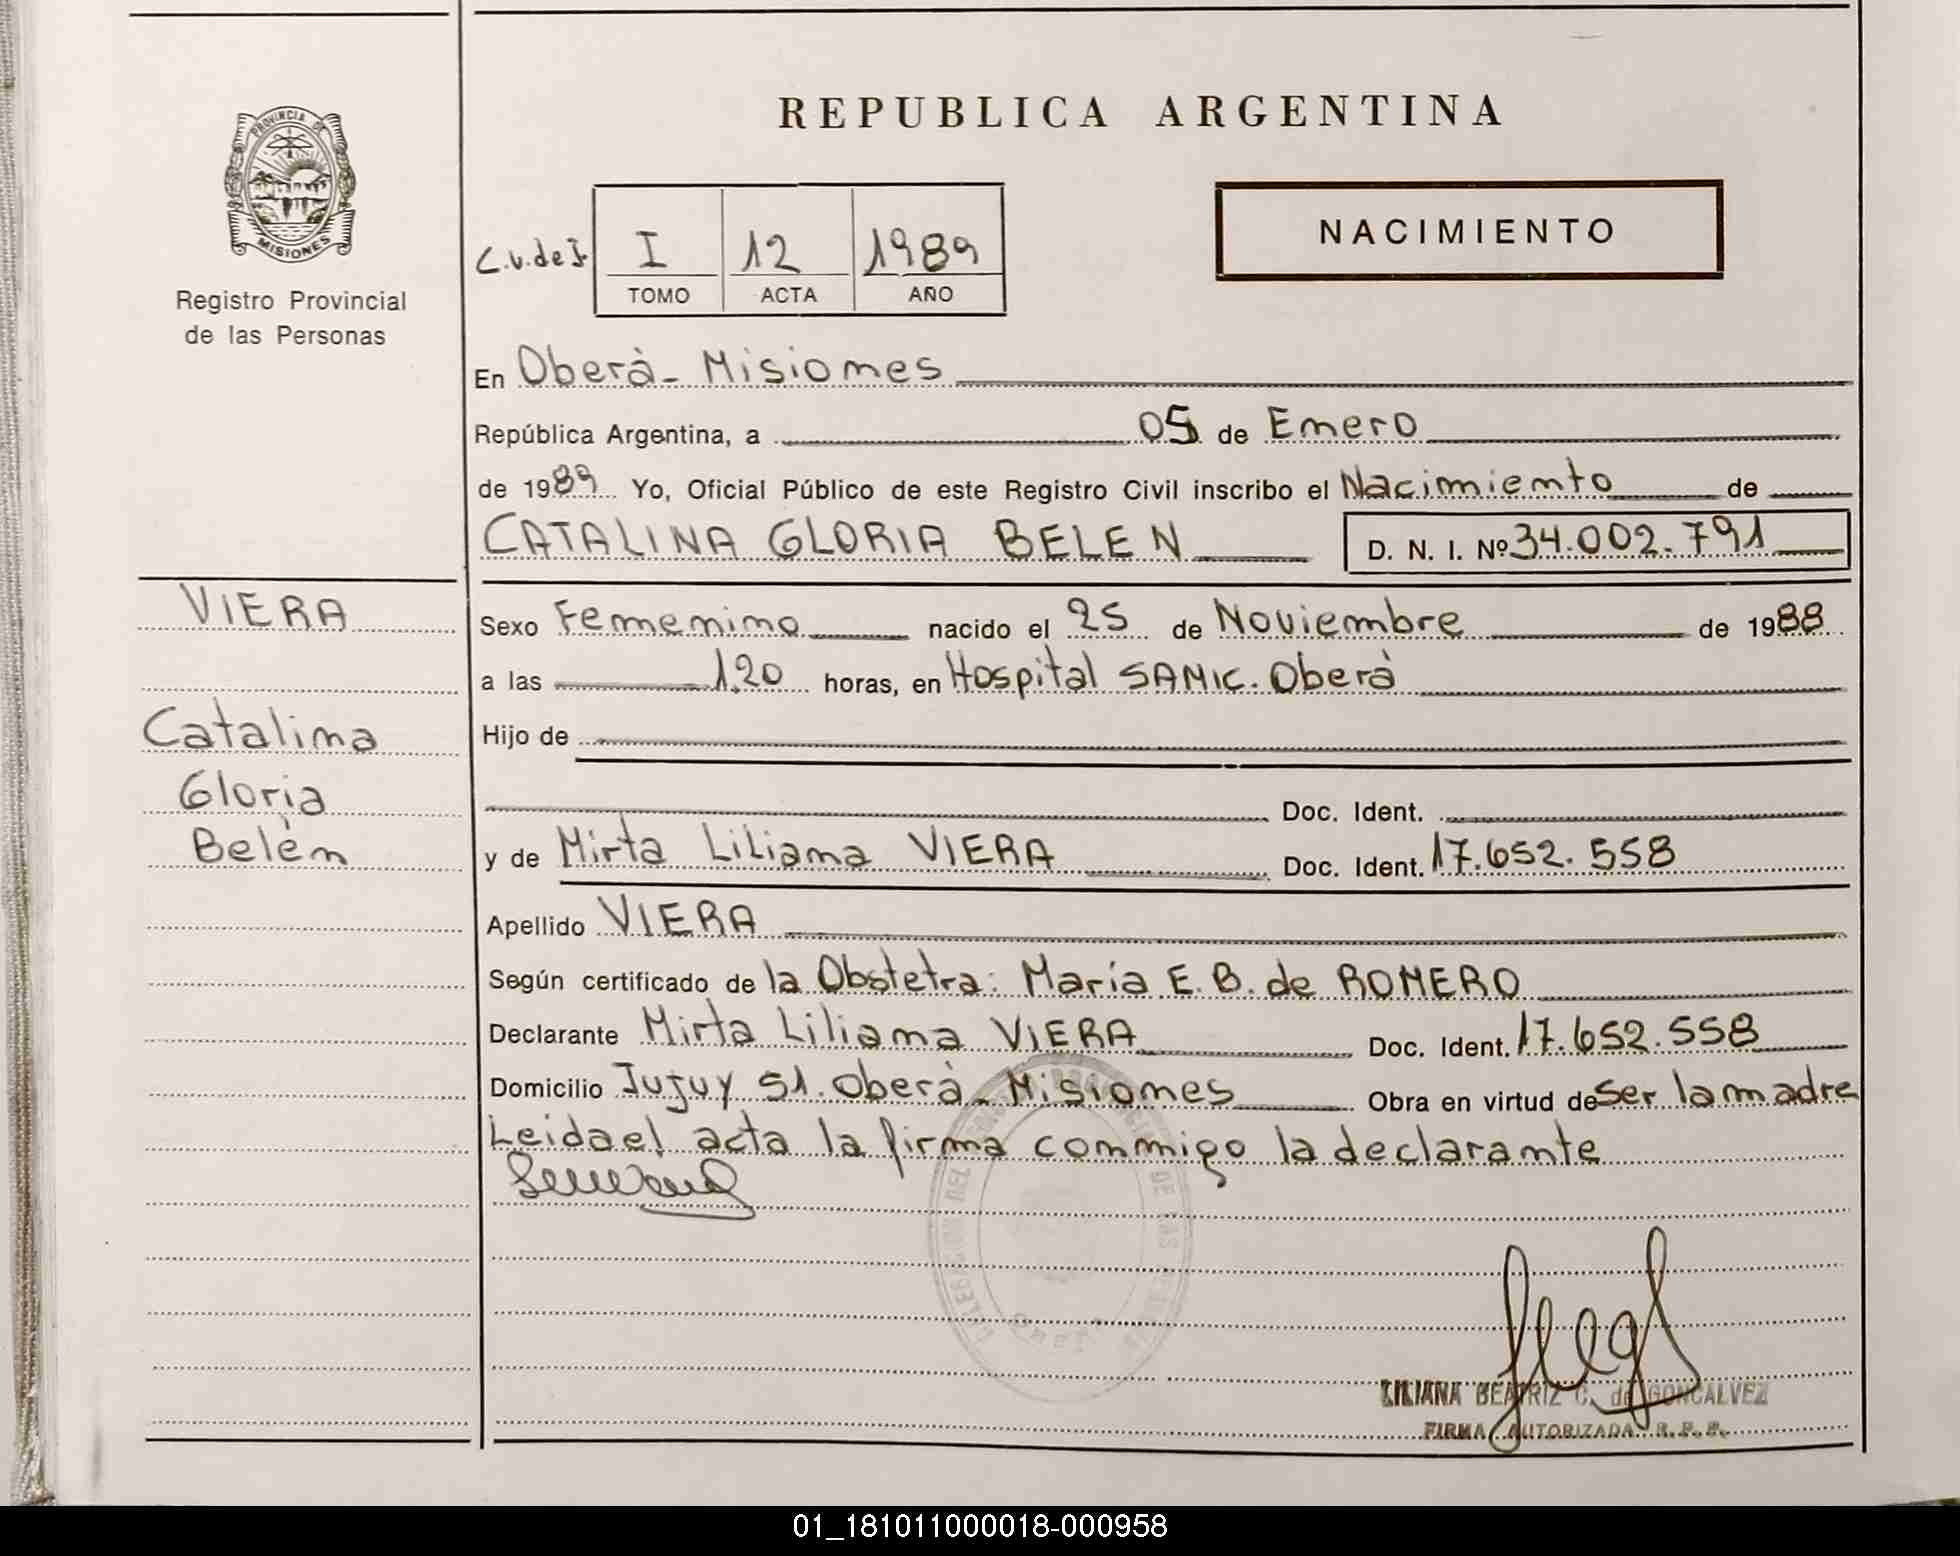 REPUBLICA ARGENTINA
PROVINCIA DE
MISIONES
Registro Provincial
de las Personas
NACIMIENTO
C.V. de I. I 12 1989
TOMO ACTA AÑO
En Oberá - Misiones
República Argentina, a 05 de Enero
de 1989 Yo, Oficial Público de este Registro Civil inscribo el Nacimiento de
CATALINA GLORIA BELEN D. N. I. Nº 34.002.791
VIERA
Catalina
Gloria
Belén
Sexo Femenino nacido el 25 de Noviembre de 1988
a las 1,20 horas, en Hospital SAMIC. Oberá
Hijo de
Doc. Ident.
y de Mirta Liliana VIERA Doc. Ident. 17.652.558
Apellido VIERA
Según certificado de la Obstetra: María E. B. de ROMERO
Declarante Mirta Liliana VIERA Doc. Ident. 17.652.558
Domicilio Jujuy 51. Oberá - Misiones Obra en virtud de Ser la madre
Leida el acta la firma conmigo la declarante
LILIANA BEATRIZ C. de GONCALVEZ
FIRMA AUTORIZADA R. P. P.
01_181011000018-000958